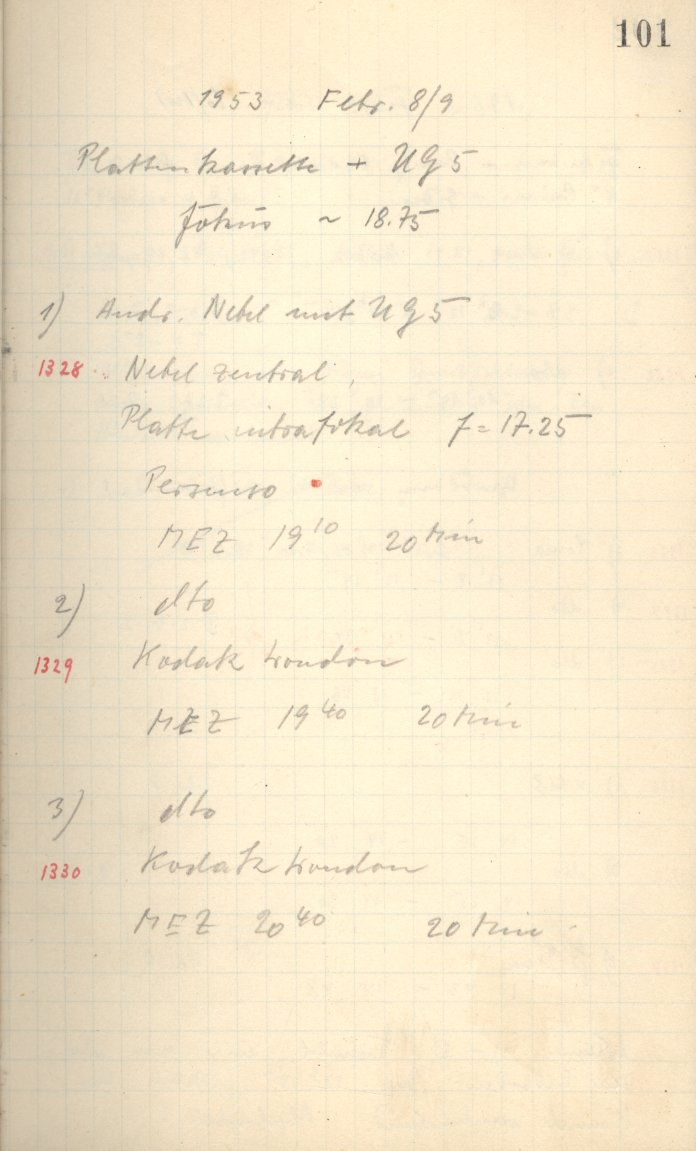 101
1953 Febr. 8/9
Plattenkassette + UG 5
Fokus ~ 18.75
1) Andr. Nebel mit UG 5
1328 Nebel zentral,
Platte intrafokal f = 17.25
Persenso
MEZ 19 10 20 Min
2) dto
1329 Kodak London
MEZ 19 40 20 Min
3) dto
1330 Kodak London
MEZ 20 40 20 Min